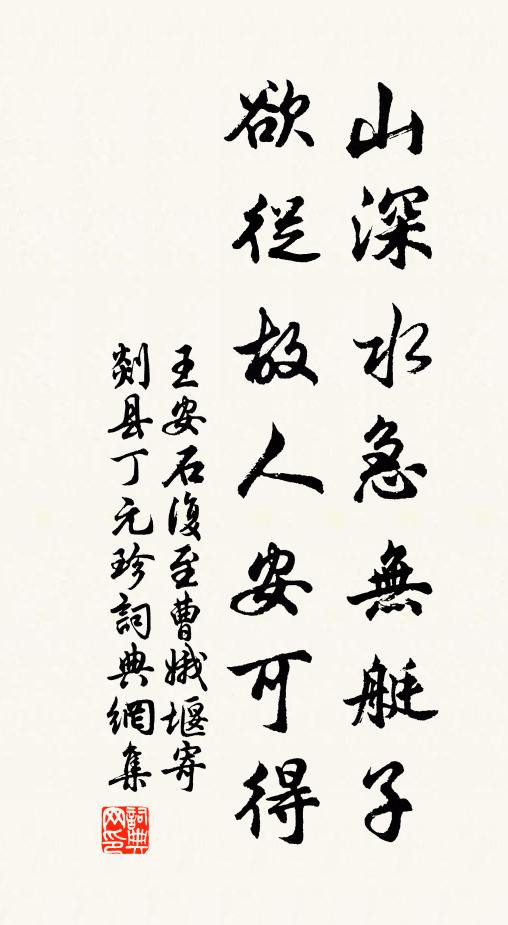 山深水急無艇子
欲從故人安可得
王安石復至曹娥堰寄
剡县丁元珍詞典網集
詞典网印